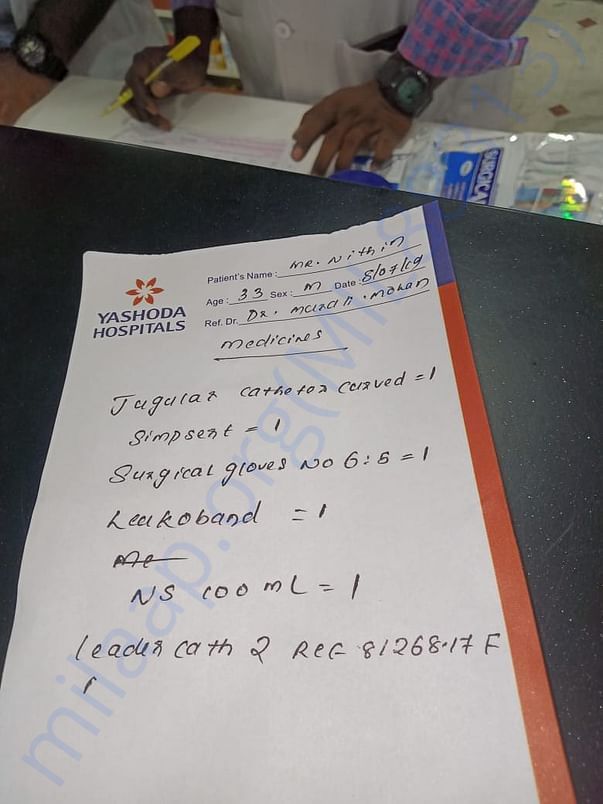 SURGICA
YASHODA
HOSPITALS
Patient's Name : MR. Nithin
Age : 33 Sex : M Date : 8/07/19
Ref. Dr. Dr. murali. mohan
medicines
Jugular catheter curved = 1
Simpsert = 1
Surgical gloves No 6:5 = 1
Leukoband = 1
me
NS 100 mL = 1
leader cath 2 REF 81268.17 F
1
milaap.org(Mil